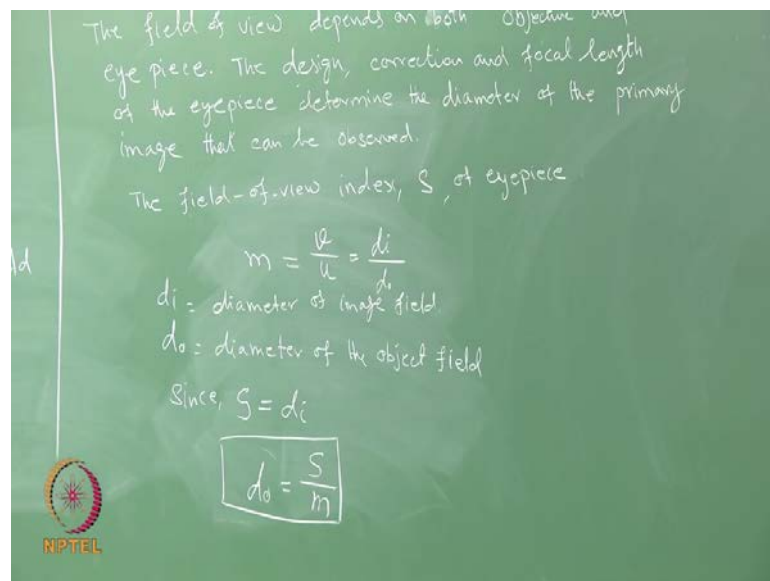 The field of view depends on both objective and
eye piece. The design, correction and focal length
of the eyepiece determine the diameter of the primary
image that can be observed.
The field-of-view index, S, of eyepiece
m = v/u = di/do
di = diameter of image field.
ld
do = diameter of the object field
Since, S = di
do = S/m
NPTEL